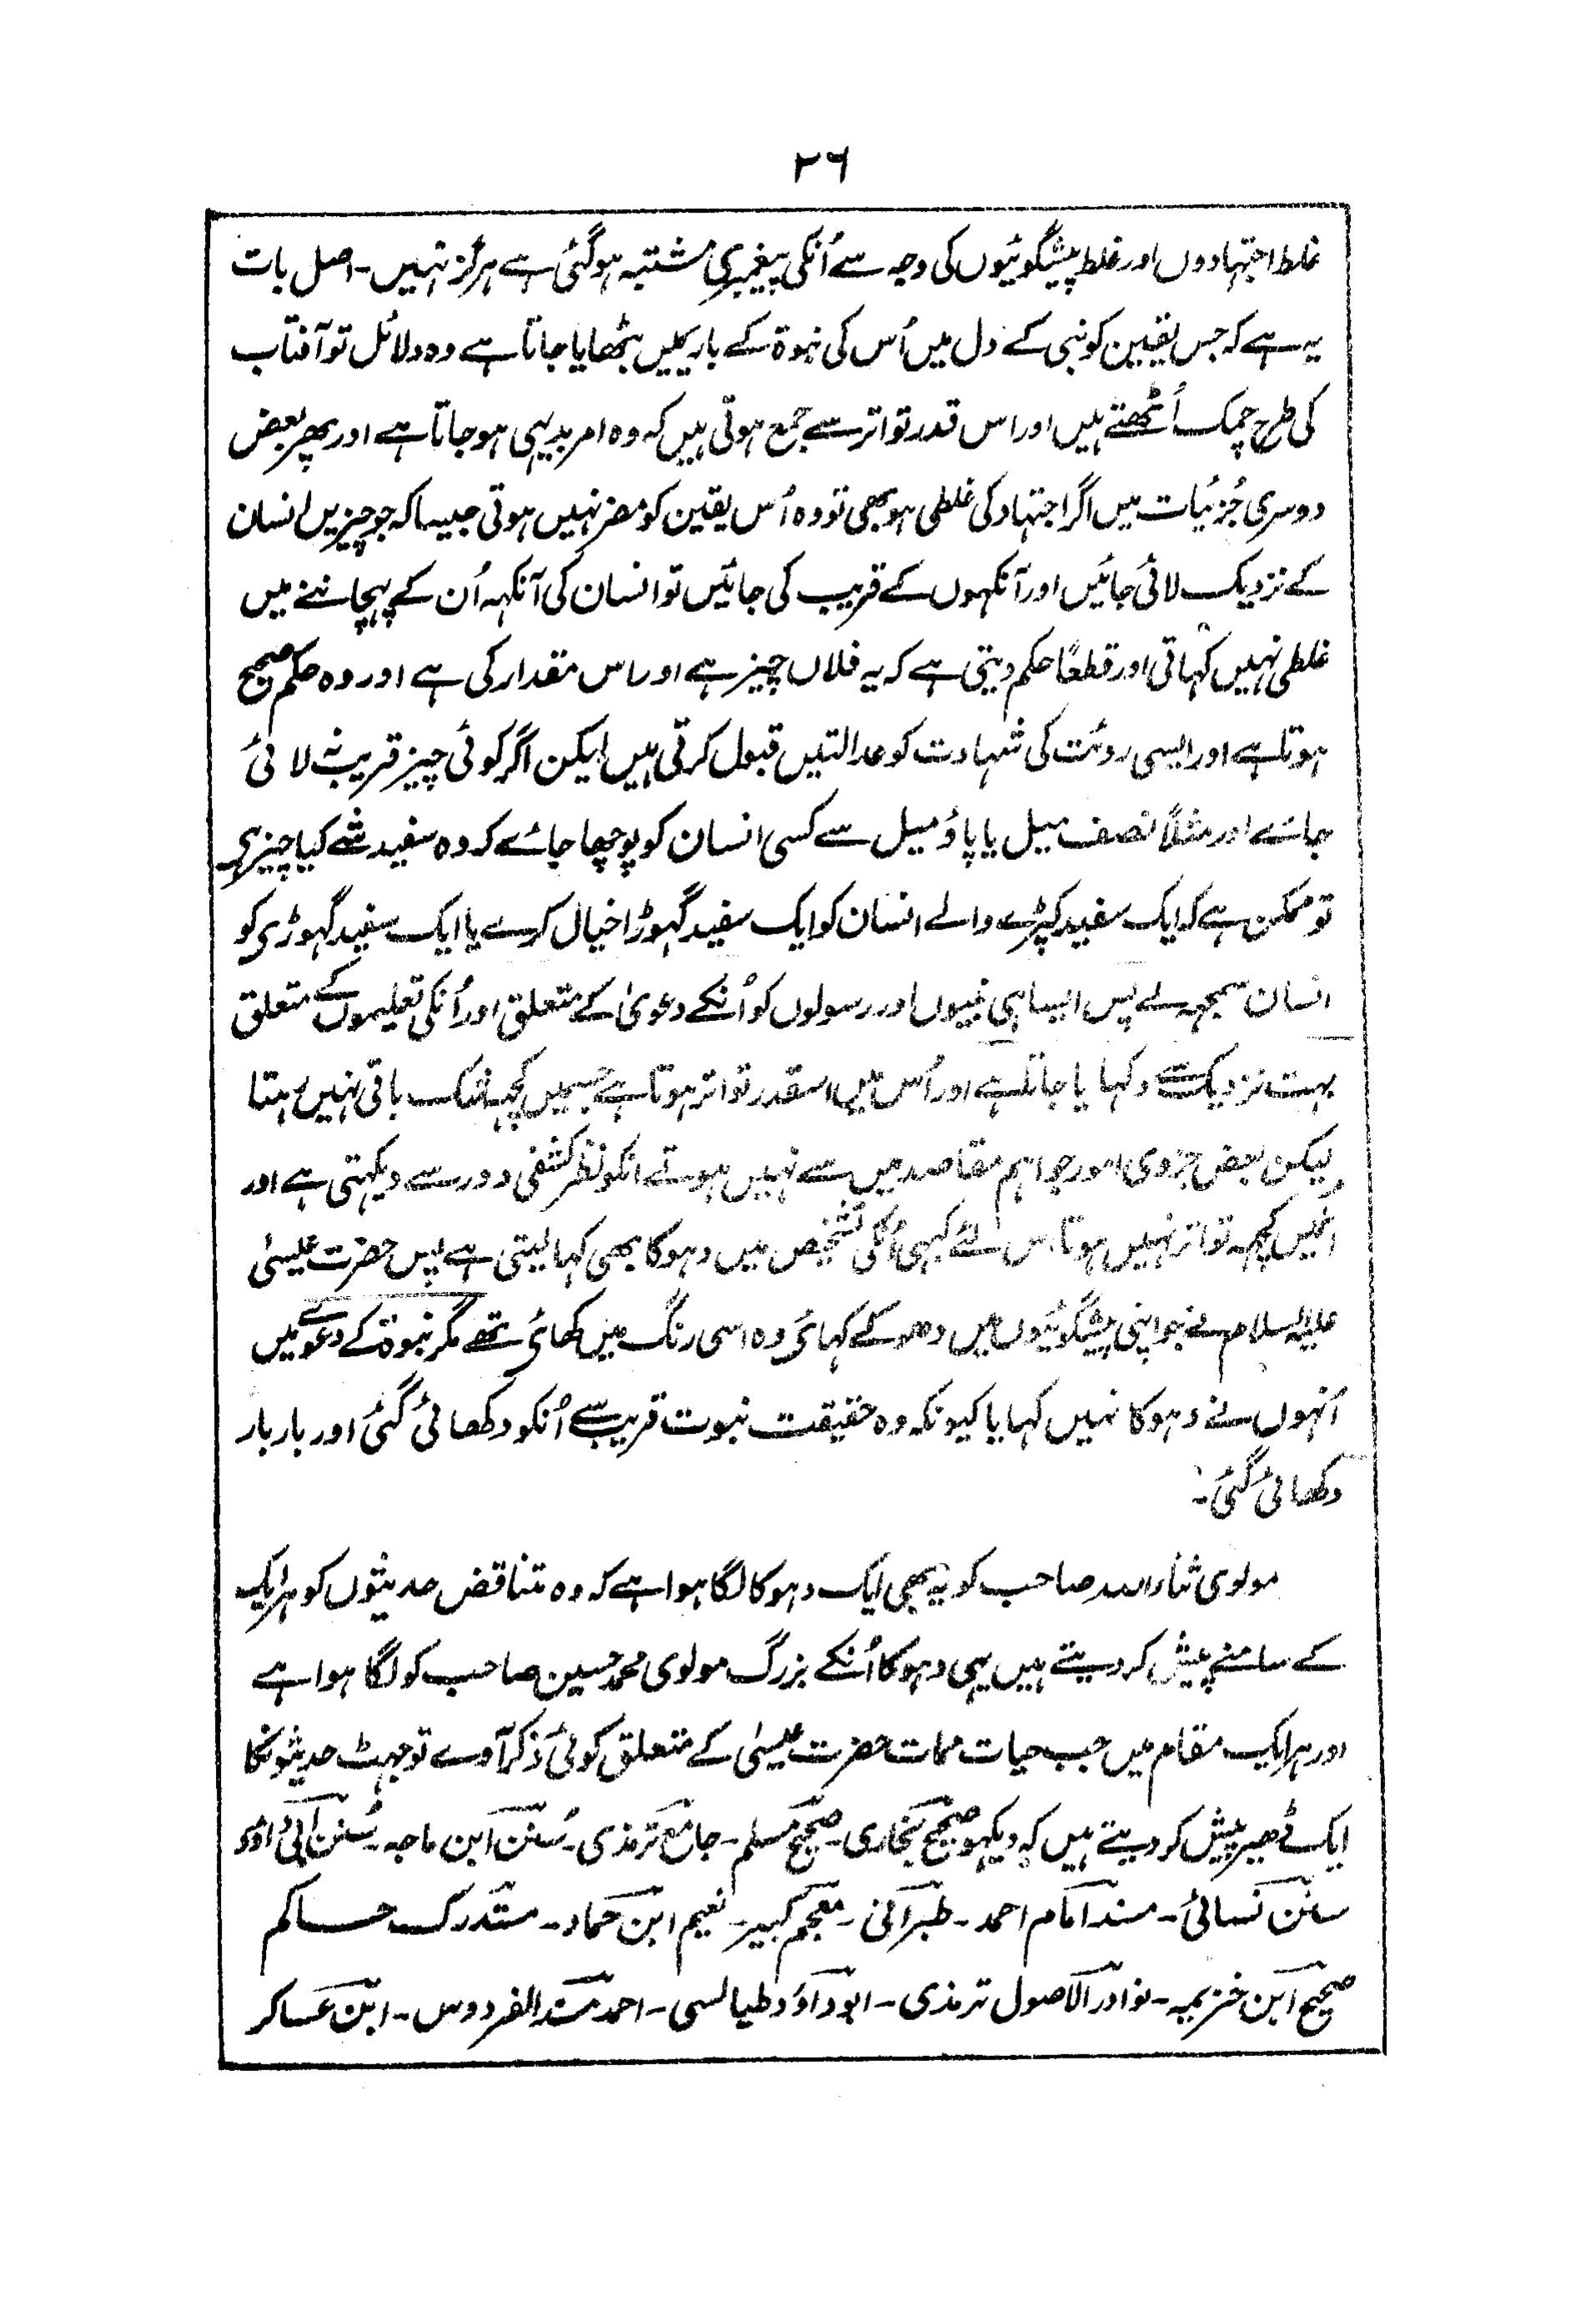 ۲۶
غلط اجتہادوں اور غلط پیشگوئیوں کی وجہ سے اُنکی پیغمبری مشتبہ ہوگئی ہے ہرگز نہیں۔ اصل بات
یہ ہے کہ جس یقین کو نبی کے دل میں اُس کی نبوۃ کے باریمیں بٹھایا جاتا ہے وہ دلائل تو آفتاب
کی طرح چمک اُٹھتے ہیں اور اس قدر تواتر سے جمع ہوتی ہیں کہ وہ امر بدیہی ہوجاتا ہے اور پھر بعض
دوسری جُزئیات میں اگر اجتہاد کی غلطی ہو بھی تو وہ اُس یقین کو مضر نہیں ہوتی جیسا کہ جو چیزیں انسان
کے نزدیک لائی جائیں اور آنکہوں کے قریب کی جائیں تو انسان کی آنکہہ اُن کے پہچاننے میں
غلطی نہیں کہاتی اور قطعًا حکم دیتی ہے کہ یہ فلاں چیز ہے اور اس مقدار کی ہے اور وہ حکم صحیح
ہوتا ہے اور ایسی روئت کی شہادت کو عدالتیں قبول کرتی ہیں لیکن اگر کوئی چیز قریب نہ لائی
جائے اور مثلاً نصف میل یا پاؤ میل سے کسی انسان کو پوچھا جائے کہ وہ سفید شے کیا چیز ہے
تو ممکن ہے کہ ایک سفید کپڑے والے انسان کو ایک سفید گہوڑا خیال کرے یا ایک سفید گہوڑی کو
انسان سمجہہ لے پس ایسا ہی نبیوں اور رسولوں کو اُنکے دعویٰ کے متعلق اور اُنکی تعلیموں کے متعلق
بہت نزدیک سے دکہایا جاتا ہے اور اُس میں اسقدر تواتر ہوتا ہے جسمیں کچہہ شک باقی نہیں رہتا
لیکن بعض جزوی امور جو اہم مقاصد میں سے نہیں ہوتے انکو نظر کشفی دور سے دیکہتی ہے اور
اُنمیں کچہہ تواتر نہیں ہوتا اس لئے کبہی اُنکی تشخیص میں دہوکا بھی کہا لیتی ہے پس حضرت عیسیٰ
علیہ السلام نے جو اپنی پیشگوئیوں میں دھوکے کہائے وہ اسی رنگ میں کھائے تھے مگر نبوۃ کے دعوے میں
اُنہوں نے دہوکا نہیں کہایا کیونکہ وہ حقیقت نبوت قریب سے اُنکو دکھائی گئی اور بار بار
دکھائی گئی۔
مولوی ثناء اللہ صاحب کو یہ بھی ایک دہوکا لگا ہوا ہے کہ وہ متناقض حدیثوں کو ہر ایک
کے سامنے پیش کردیتے ہیں یہی دہوکا اُنکے بزرگ مولوی محمد حسین صاحب کو لگا ہوا ہے
اور ہر ایک مقام میں جب حیات ممات حضرت عیسیٰ کے متعلق کوئی ذکر آوے تو جہٹ حدیثونکا
ایک ڈھیر پیش کردیتے ہیں کہ دیکہو صحیح بخاری۔ صحیح مسلم۔ جامع ترمذی۔ سُنن ابن ماجہ۔ سُنن ابی داؤد
سنن نسائی۔ مسند امام احمد۔ طبرانی۔ معجم کبیر۔ نعیم ابن حماد۔ مستدرک حاکم
صحیح ابن خزیمہ۔ نوادر الاصول ترمذی۔ ابوداؤد طیالسی۔ احمد مسند الفردوس۔ ابن عساکر